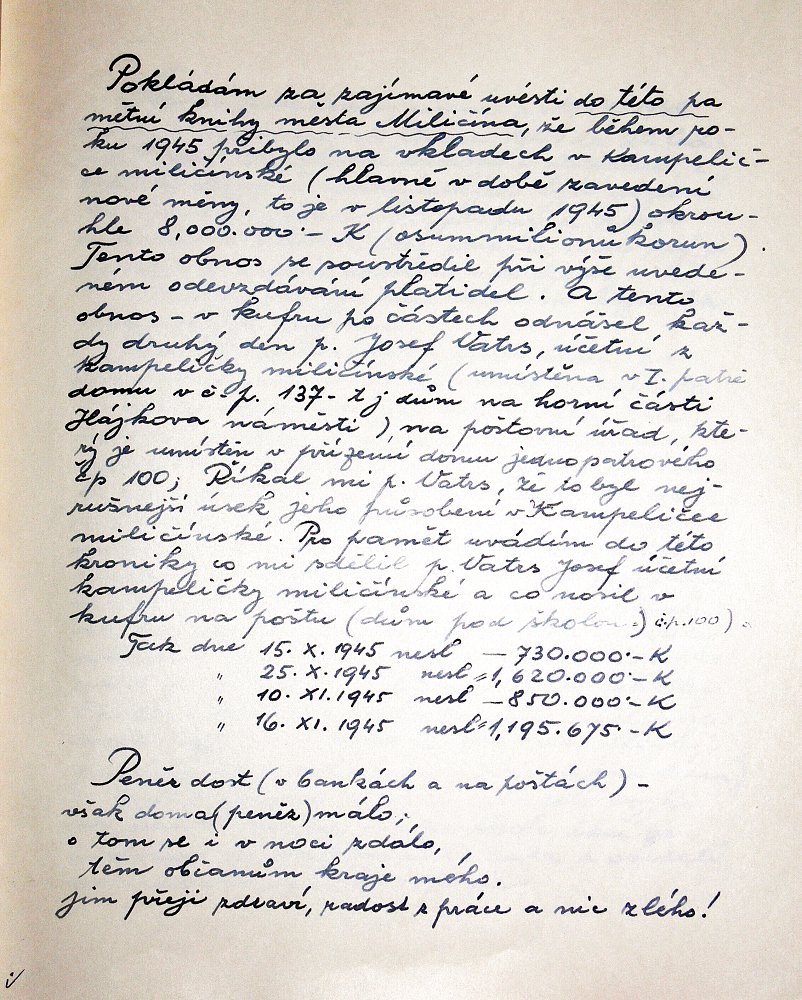 Pokládám za zajímavé uvésti do této pa
mětní knihy města Miličína, že během ro-
ku 1945 přibylo na vkladech v Kampelič-
ce miličínské (hlavně v době zavedení
nové měny, to je v listopadu 1945) okrou-
hle 8,000.000·- K (osummilionůkorun).
Tento obnos se soustředil při výše uvede-
ném odevzdávání platidel. A tento
obnos - v kufru po částech odnášel kaž-
dý druhý den p. Josef Vatrs, účetní z
kampeličky miličínské (umístěna v I. patře
domu v č. p. 137 - t j dům na horní části
Hájkova náměstí), na poštovní úřad, kte-
rý je umístěn v přízemí domu jednopatrového
čp 100; Říkal mi p. Vatrs, že to byl nej-
rušnější úsek jeho působení v Kampeličce
miličínské. Pro pamět uvádím do této
kroniky co mi sdělil p. Vatrs Josef účetní
kampeličky miličínské a co nosil v
kufru na poštu (dům pod školou.) č.p.100).
Tak dne 15. X. 1945 nesl — 730.000·- K
„ 25. X. 1945 nesl „ 1,620.000·- K
„ 10. XI. 1945 nesl — 850.000·- K
„ 16. XI. 1945 nesl „ 1,195.675·- K
Peněz dost (v bankách a na poštách) -
však doma (peněz) málo;
o tom se i v noci zdálo,
těm občanům kraje mého.
jim přeji zdraví, radost z práce a nic zlého!